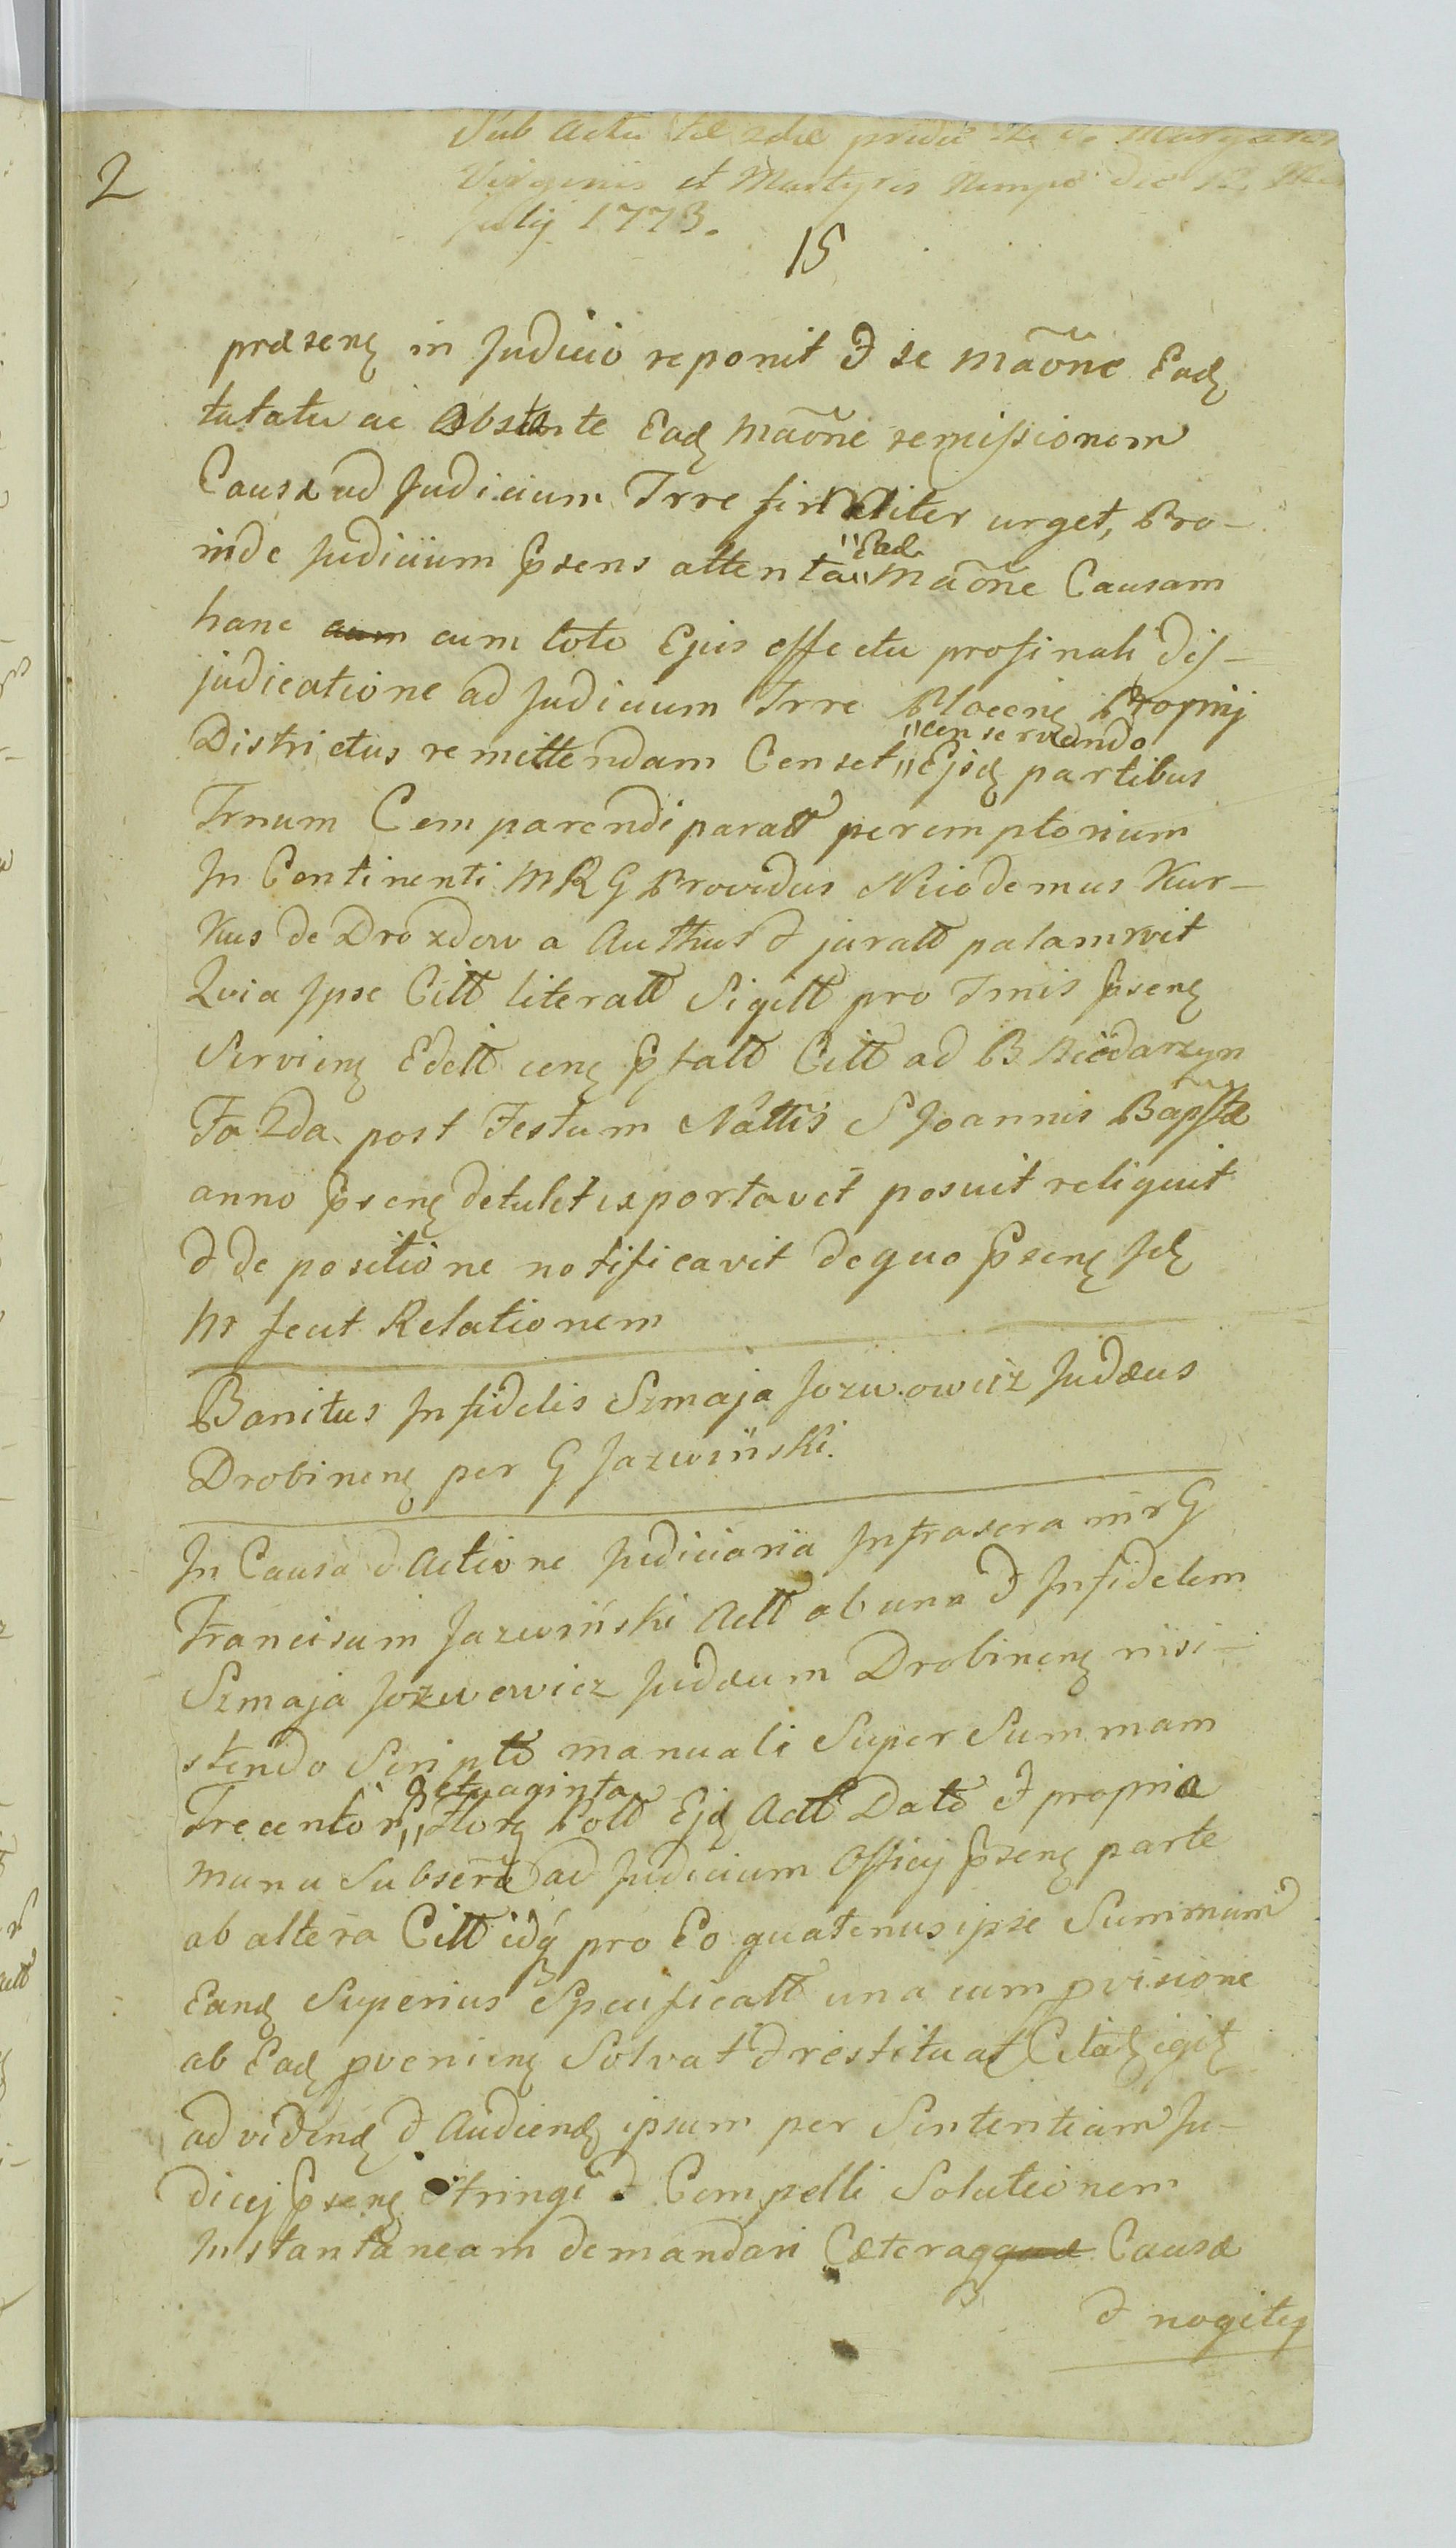 2
Sub Actu fæ 2dæ pridie S. Margaret
Virginis et Martyris Nempe die 12 Me
Julij 1773.
15
præsenę in Judicio reponit & se maõne Eadę
tutatu ac Obstante Eadę maõne remissionem
Causæ ad Judicium Trre finaliter urget, Pro-
inde Judicium Psens attenta "Ead maõne Causam
hanc cum cum toto Ejus effectu profinali dis-
judicatione ad Judicium Trre Plocenę Propnij
Districtus remittendam Censet "conservando Ejsdę partibus
Trnum Comparendi paratt peremptorium
In Continenti MRG Providus Nicodemus Kur-
kus de Drozdowo Authus & juratt palam rvit
Quia Ipse Citt literatt Sigill pro Trnis Psenę
Servienę Edett cenę Pfatt Citt ad B Niedarzyn
Fa 2da post Festum Nattis S Joannis Baptæ
anno Psenę detulit exportavit posuit reliquit
& de positione notificavit de quo Psenę Jdę
Mr fecit Relationem
Banitus Infidelis Szmaja Jozwowicz Judæus
Drobinenę per G Jazwiński.
In Causa & Actione Judiciaria Infrascra inr G
Franciscum Jazwiński Actt ab una & Infidelem
Szmaja Jozwowicz Judæum Drobinenę insi-
stendo Scripto manuali Super Summam
Trecentor "Octuaginta Florę Poll Ejdę Actt Dato & propria
manu Subscro ad Judicium Officij Psenę parte
ab altera Citt idq́ pro Eo quatenus ipse Summam
Eandę Superius Specificatt una cum pvisione
ab Eadę pvenienę Solvat & restituat Citatę igitę
ad videndę & Audiendę ipsum per Sententiam Ju-
dicij Psenę Stringi & Compelli Solutionem
Instantaneam demandari Cæteraq quæ Causæ
& nogitię